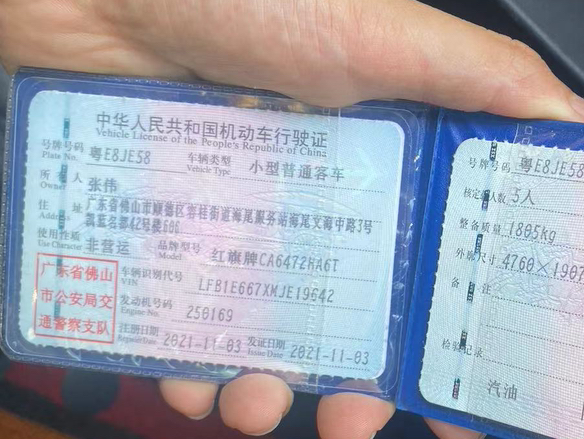 中华人民共和国机动车行驶证
Vehicle License of the People's Republic of China
号牌号码 粤E8JE58 车辆类型 小型普通客车
Plate No. Vehicle Type
所有人 张伟
Owner
住址 广东省佛山市顺德区容桂街道海尾服务站海尾文海中路3号
Address 凯蓝名都42号楼606
使用性质 非营运 品牌型号 红旗牌CA6472HA6T
Use Character Model
广东省佛山
市公安局交
通警察支队
车辆识别代号 LFB1E667XMJE19642
VIN
发动机号码 250169
Engine No.
注册日期 2021-11-03 发证日期 2021-11-03
Register Date Issue Date
号牌号码 粤E8JE58
核定载人数 5人
整备质量 1805kg
外廓尺寸 4760×1907
备注
检验记录
汽油